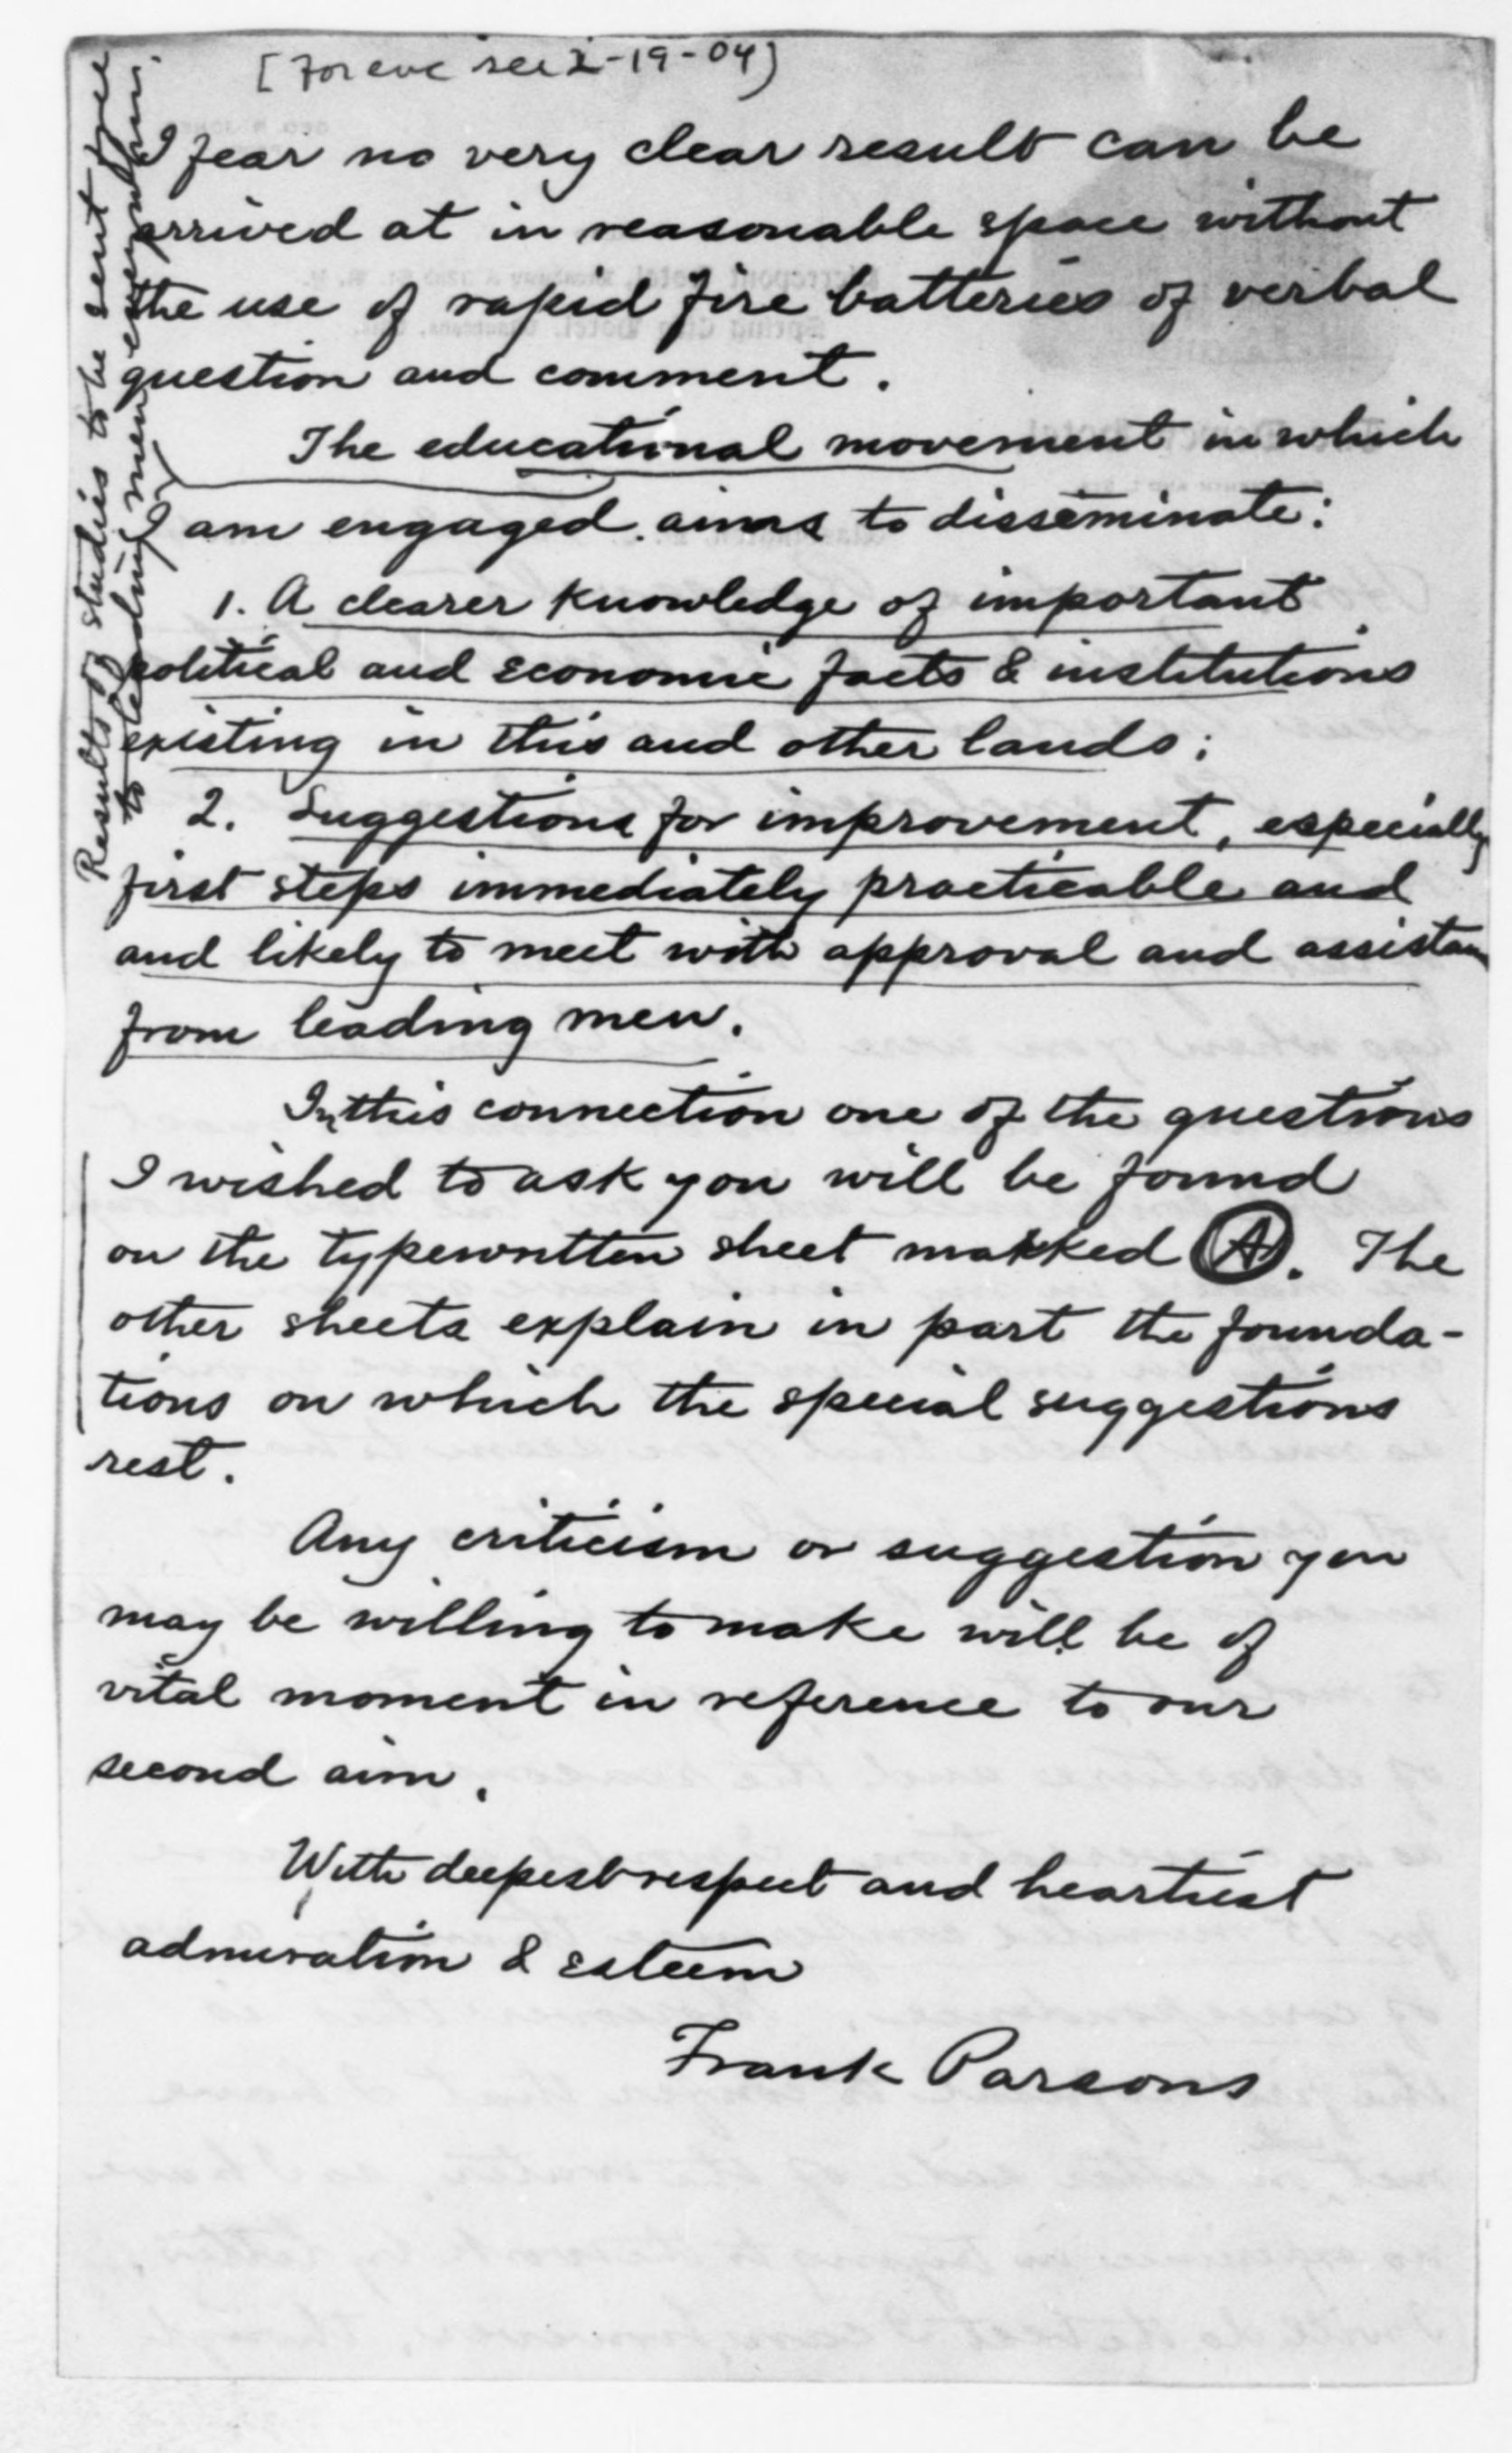 [For enc see 2-19-04]
I fear no very clear result can be
arrived at in reasonable space without
the use of rapid fire batteries of verbal
question and comment.
The educational movement in which
I am engaged aims to disseminate:
1. A clearer knowledge of important
political and economic facts & institutions
existing in this and other lands;
2. Suggestions for improvement, especially
first steps immediately practicable and
and likely to meet with approval and assistan
from leading men.
In this connection one of the questions
I wished to ask you will be found
on the typewritten sheet marked A. The
other sheets explain in part the founda-
tions on which the special suggestions
rest.
Any criticism or suggestion you
may be willing to make will be of
vital moment in reference to our
second aim.
With deepest respect and heartiest
admiration & esteem
Frank Parsons
Results of studies to be sent free
to leading men everywhere.